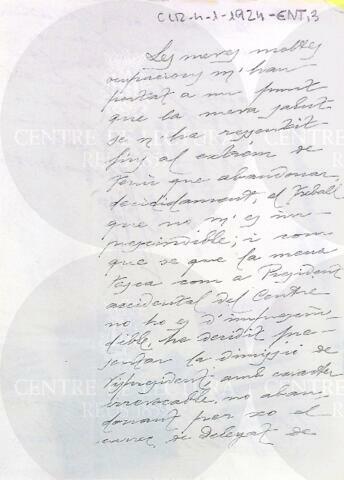 CLR-4-1-1924-ENT,3
Les meves moltes
ocupacions m'han
portat a un punt
que la meva salut
se n'ha ressentit
fins al extrem de
tenir que abandonar,
decididament, el treball
que no m'es im-
prescindible; i com
que se que la meva
tasca com a President
accidental del Centre
no ho es d'imprescin-
dible, he decidit pre-
sentar la dimissió de
Vispresident, amb caracter
irrevocable, no aban-
donant per xo el
carrec de delegat de
CENTRE DE LECTURA
CENTRE DE LECTURA